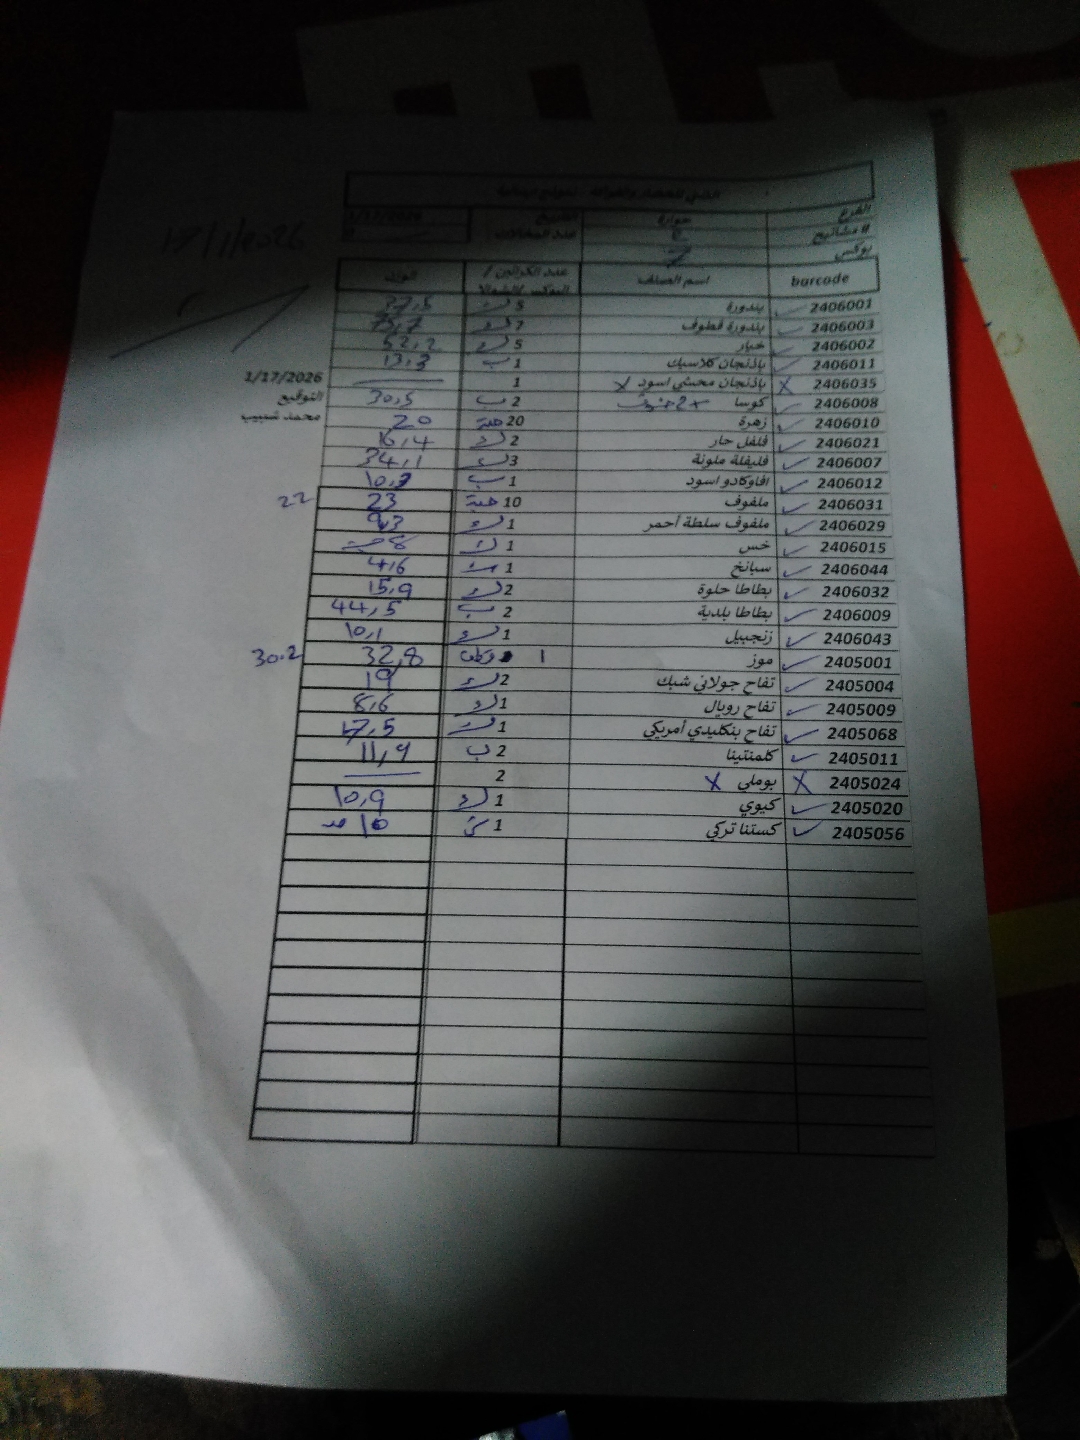 17/1/2026
الفرع حوارة التاريخ 1/17/2026
# مشاتيح 2
بوكس 7
barcode اسم الصنف عدد الكراتين / الوزن
2406001 بندورة 5 37,5
2406003 بندورة قطوف 7
2406002 خيار 5 52,2
2406011 باذنجان كلاسيك 1 ب 13,3
2406035 X باذنجان محشي اسود X 1
1/17/2026
التوقيع
محمد شبيب
2406008 كوسا 2 ب 30,5
2406010 زهرة 20 حبة 20
2406021 فلفل حار 2 16,4
2406007 فليفلة ملونة 3 34,1
2406012 افاوكادو اسود 1 ب
2406031 ملفوف 10 حبة 23 22
2406029 ملفوف سلطة أحمر 1
2406015 خس 1 8
2406044 سبانخ 1 4,6
2406032 بطاطا حلوة 2 15,9
2406009 بطاطا بلدية 2 ب 44,5
2406043 زنجبيل 1 10,1
2405001 موز 1 32,8 30.2
2405004 تفاح جولاني شبك 2 19
2405009 تفاح رويال 1 8,6
2405068 تفاح بنكليدي أمريكي 1 17,5
2405011 كلمنتينا 2 ب 11,9
2405024 X بوملي X 2
2405020 كيوي 1 10,9
2405056 كستنا تركي 1 10